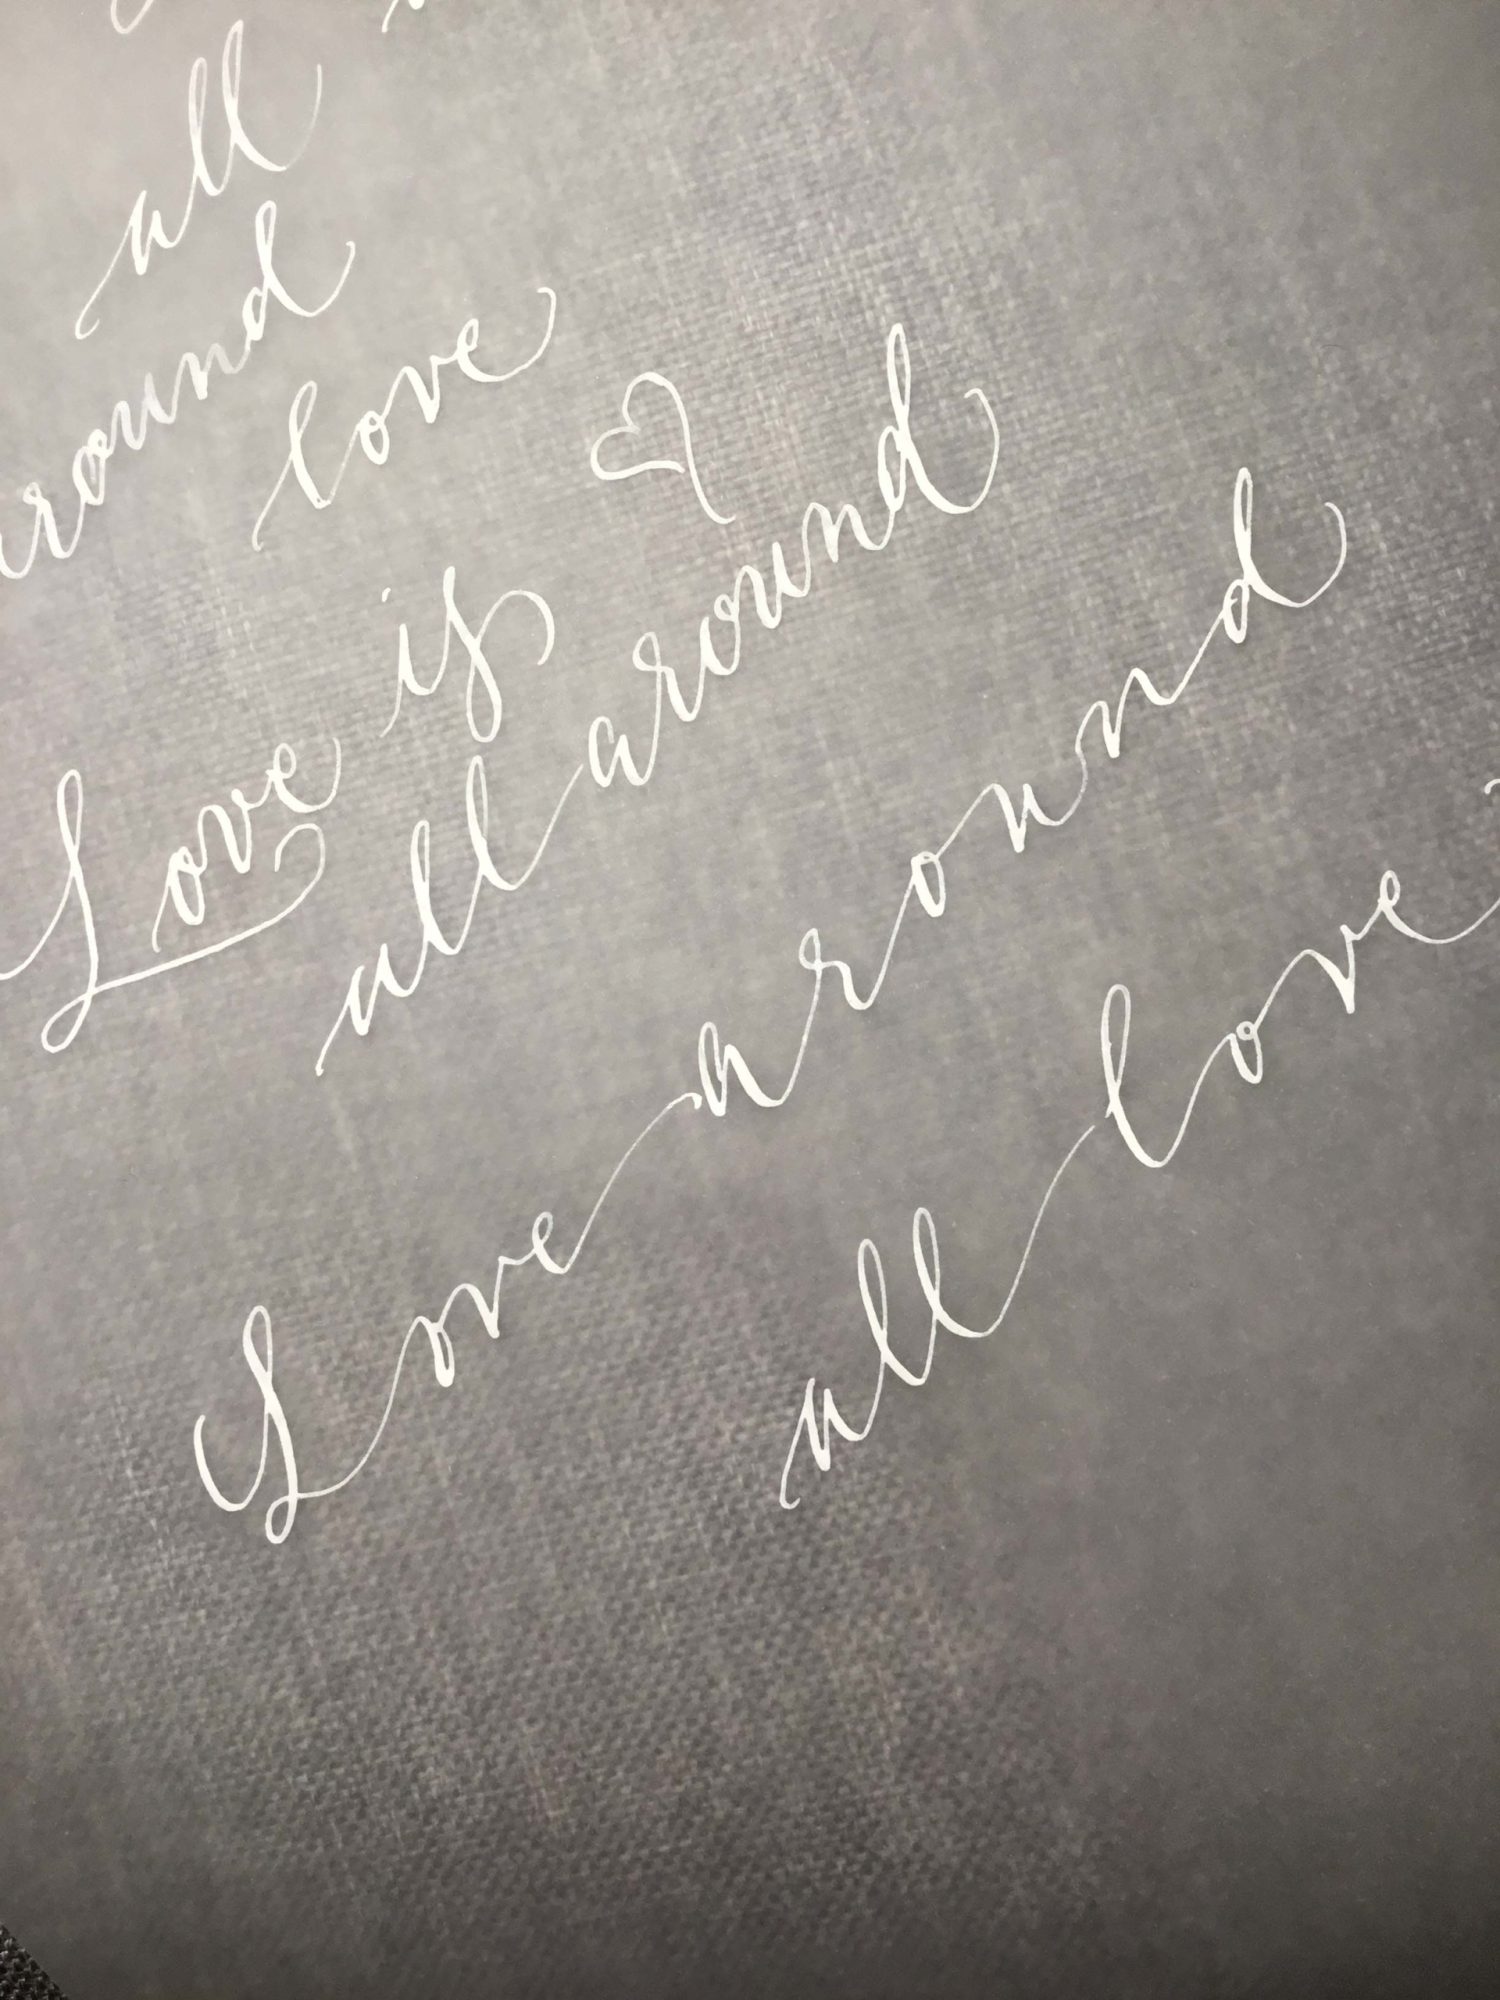 all
around
love
Love is
all around
Love around
all love